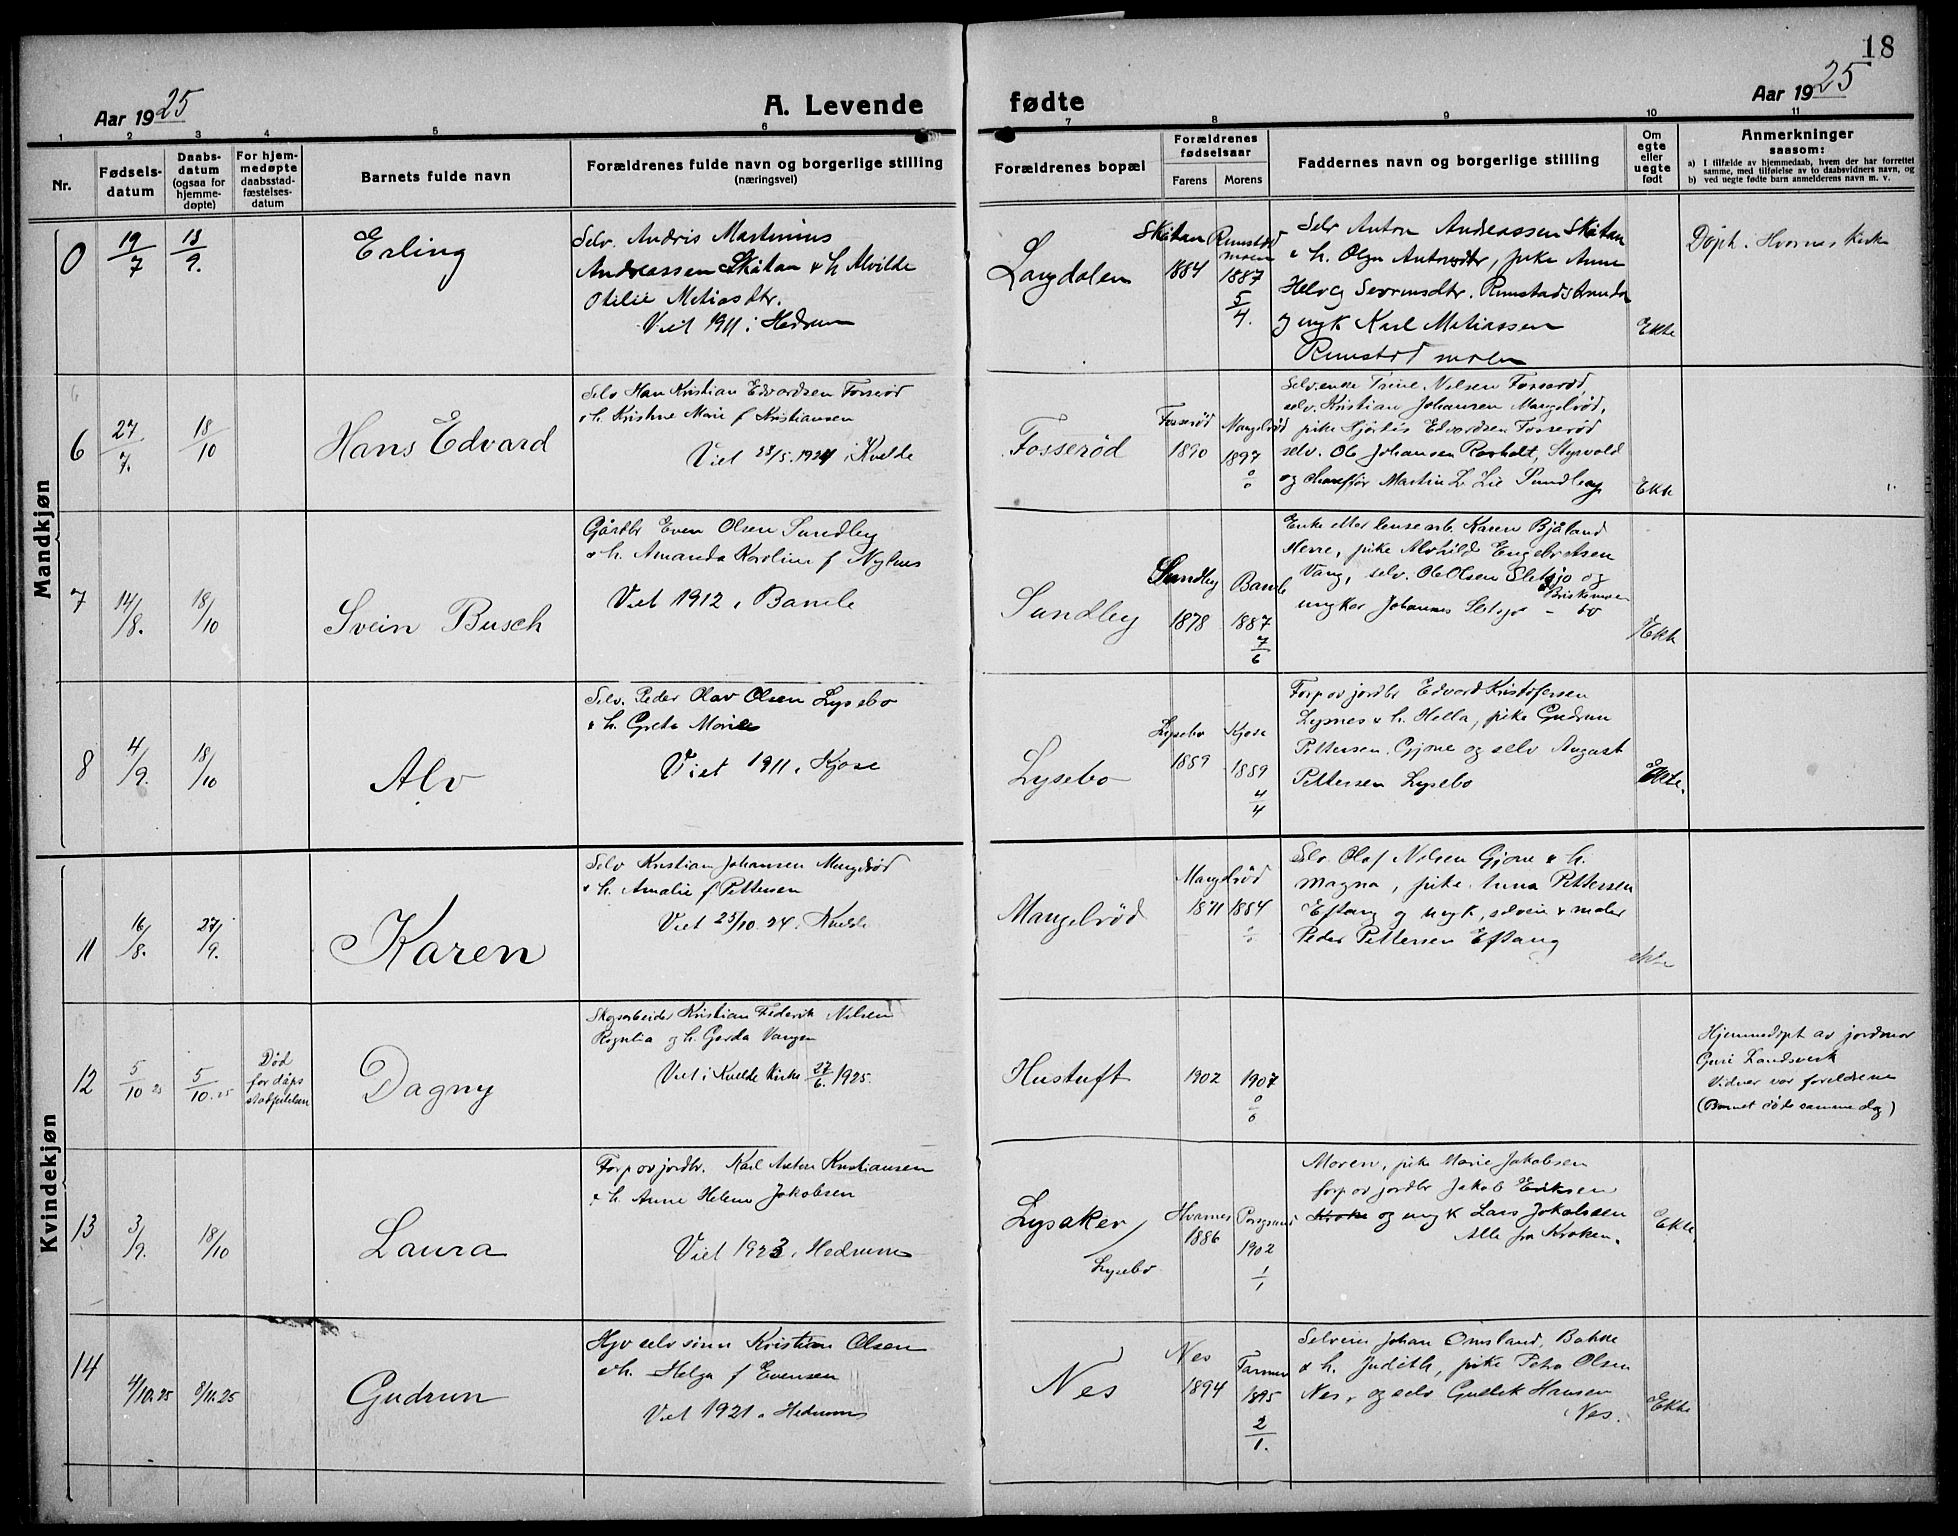 18
Aar 1925
A. Levende
fødte
Aar 1925
1 2 3 4 5 6 7 8 9 10 11
Nr.
Fødsels-
datum
Daabs-
datum
(ogsaa for
hjemme-
døpte)
For hjem-
medøpte
daabsstad-
fæstelses-
datum
Barnets fulde navn
Forældrenes fulde navn og borgerlige stilling
(næringsvei)
Forældrenes bopæl
Forældrenes
fødselsaar
Farens Morens
Faddernes navn og borgerlige stilling
Om
egte
eller
uegte
født
Anmerkninger
saasom:
a) I tilfælde av hjemmedaab, hvem der har forrettet
samme, med tilføielse av to daabsvidners navn, og
b) ved uegte fødte barn anmelderens navn m. v.
Mandkjøn
0
19/7
13/9.
Erling
Selv. Andris Martinius
Andreassen Skåtan & h. Alvilde
Otilie Matiasdtr.
Viet 1911 i Hedrum
Langdalen
Skåtan
1884
Rimstad
moen
1887
5/4.
Selv Anton Andreassen Skåtan
& h. Olga Antonsdtr, pike Anne
Helvig Sevrinsdtr. Rimstad
og ungk Karl Matiassen
Rimstad moen
Ekte
Døpt i Hvarnes kirke
6
27/7.
18/10
Hans Edvard
Selv Han Kristian Edvardsen Fosserød
& h. Kristine Marie f Kristiansen
Viet 23/5.1924 i Kvelde
Fosserød
Fosserød
1890
Mangelrød
1897
0/0
Selv.enke Trine Nilsen Fosserød,
selv. Kristian Johansen Mangelrød,
pike Hjørdis Edvardsen Fosserød
selv. Ole Johansen Roholdt, Styrvold
og chauffør Martin L. Lie Sundby
Ekte
7
14/8.
18/10
Svein Busch
Gårdbr Even Olsen Sundby
& h. Amanda Karoline f Nyhus
Viet 1912 i Bamle
Sundby
Sundby
1878
Bamle
1887
7/6
Enke etter lensearb. Karen Bjåland
Merre, pike Alvhild Engebretsen
Vang, selv. Ole Olsen Sletsjø og
Briskemoen
ungkar Johannes Sletsjø
Ekte
8
4/9.
18/10
Alv
Selv. Peder Olav Olsen Lysebo
& h. Greta Marie
Viet 1911 i Kjose
Lysebo
Lysebo
1889
Kjose
1889
4/4
Forp av jordbr Edvard Kristofersen
Lysnes & h. Hella, pike Gudrun
Pettersen Gjone og selv August
Pettersen Lysebo
Ekte.
Kvindekjøn
11
16/8.
27/9.
Karen
Selv Kristian Johansen Mangelrød
& h. Amalie f Pettersen
Viet 25/10.24 i Kvelde
Mangelrød
Mangelrød
1871 1884
Selv Olaf Nilsen Gjone & h.
Magna, pike Anna Pettersen
Eftang og ungk, selveier & maler
Peder Pettersen Eftang
ekte
12
5/10 25
5/10.25
Død
før dåps
stadfestelsen
Dagny
Skogsarbeider Kristian Federik Nilsen
og h. Gerda Vangen
Viet i Kvelde kirke 27/6 1925.
Hustuft
1902
1907
0/0
Hjemmedøpt av jordmor
Guri Landsverk
Vidner var foreldrene
(Barnet døde samme dag)
13
3/9.
18/10
Laura
Forp av jordbr. Karl Anton Kristiansen
& h. Anne Helene Jakobsen
Viet 1923 i Hedrum
Lysaker /
Lysebo
Hvarnes
1886
Porsgrund
1902
1/1
Moren, pike Marie Jakobsen
forp av jordbr Jakob Eriksen
Kroken og ungk Lars Jakobsen
Alle fra Kroken.
Ekte
14
4/10.25
8/11.25
Gudrun
Hjv selv sønn Kristian Olsen
& h. Helga f Evensen
Viet 1921 i Hedrum
Nes
Nes
1894
1895
2/1.
Selveier Johan Omsland, Bakke
& h. Judith, pike Petra Olsen
Nes, og selv Gullik Hansen
Nes.
Ekte